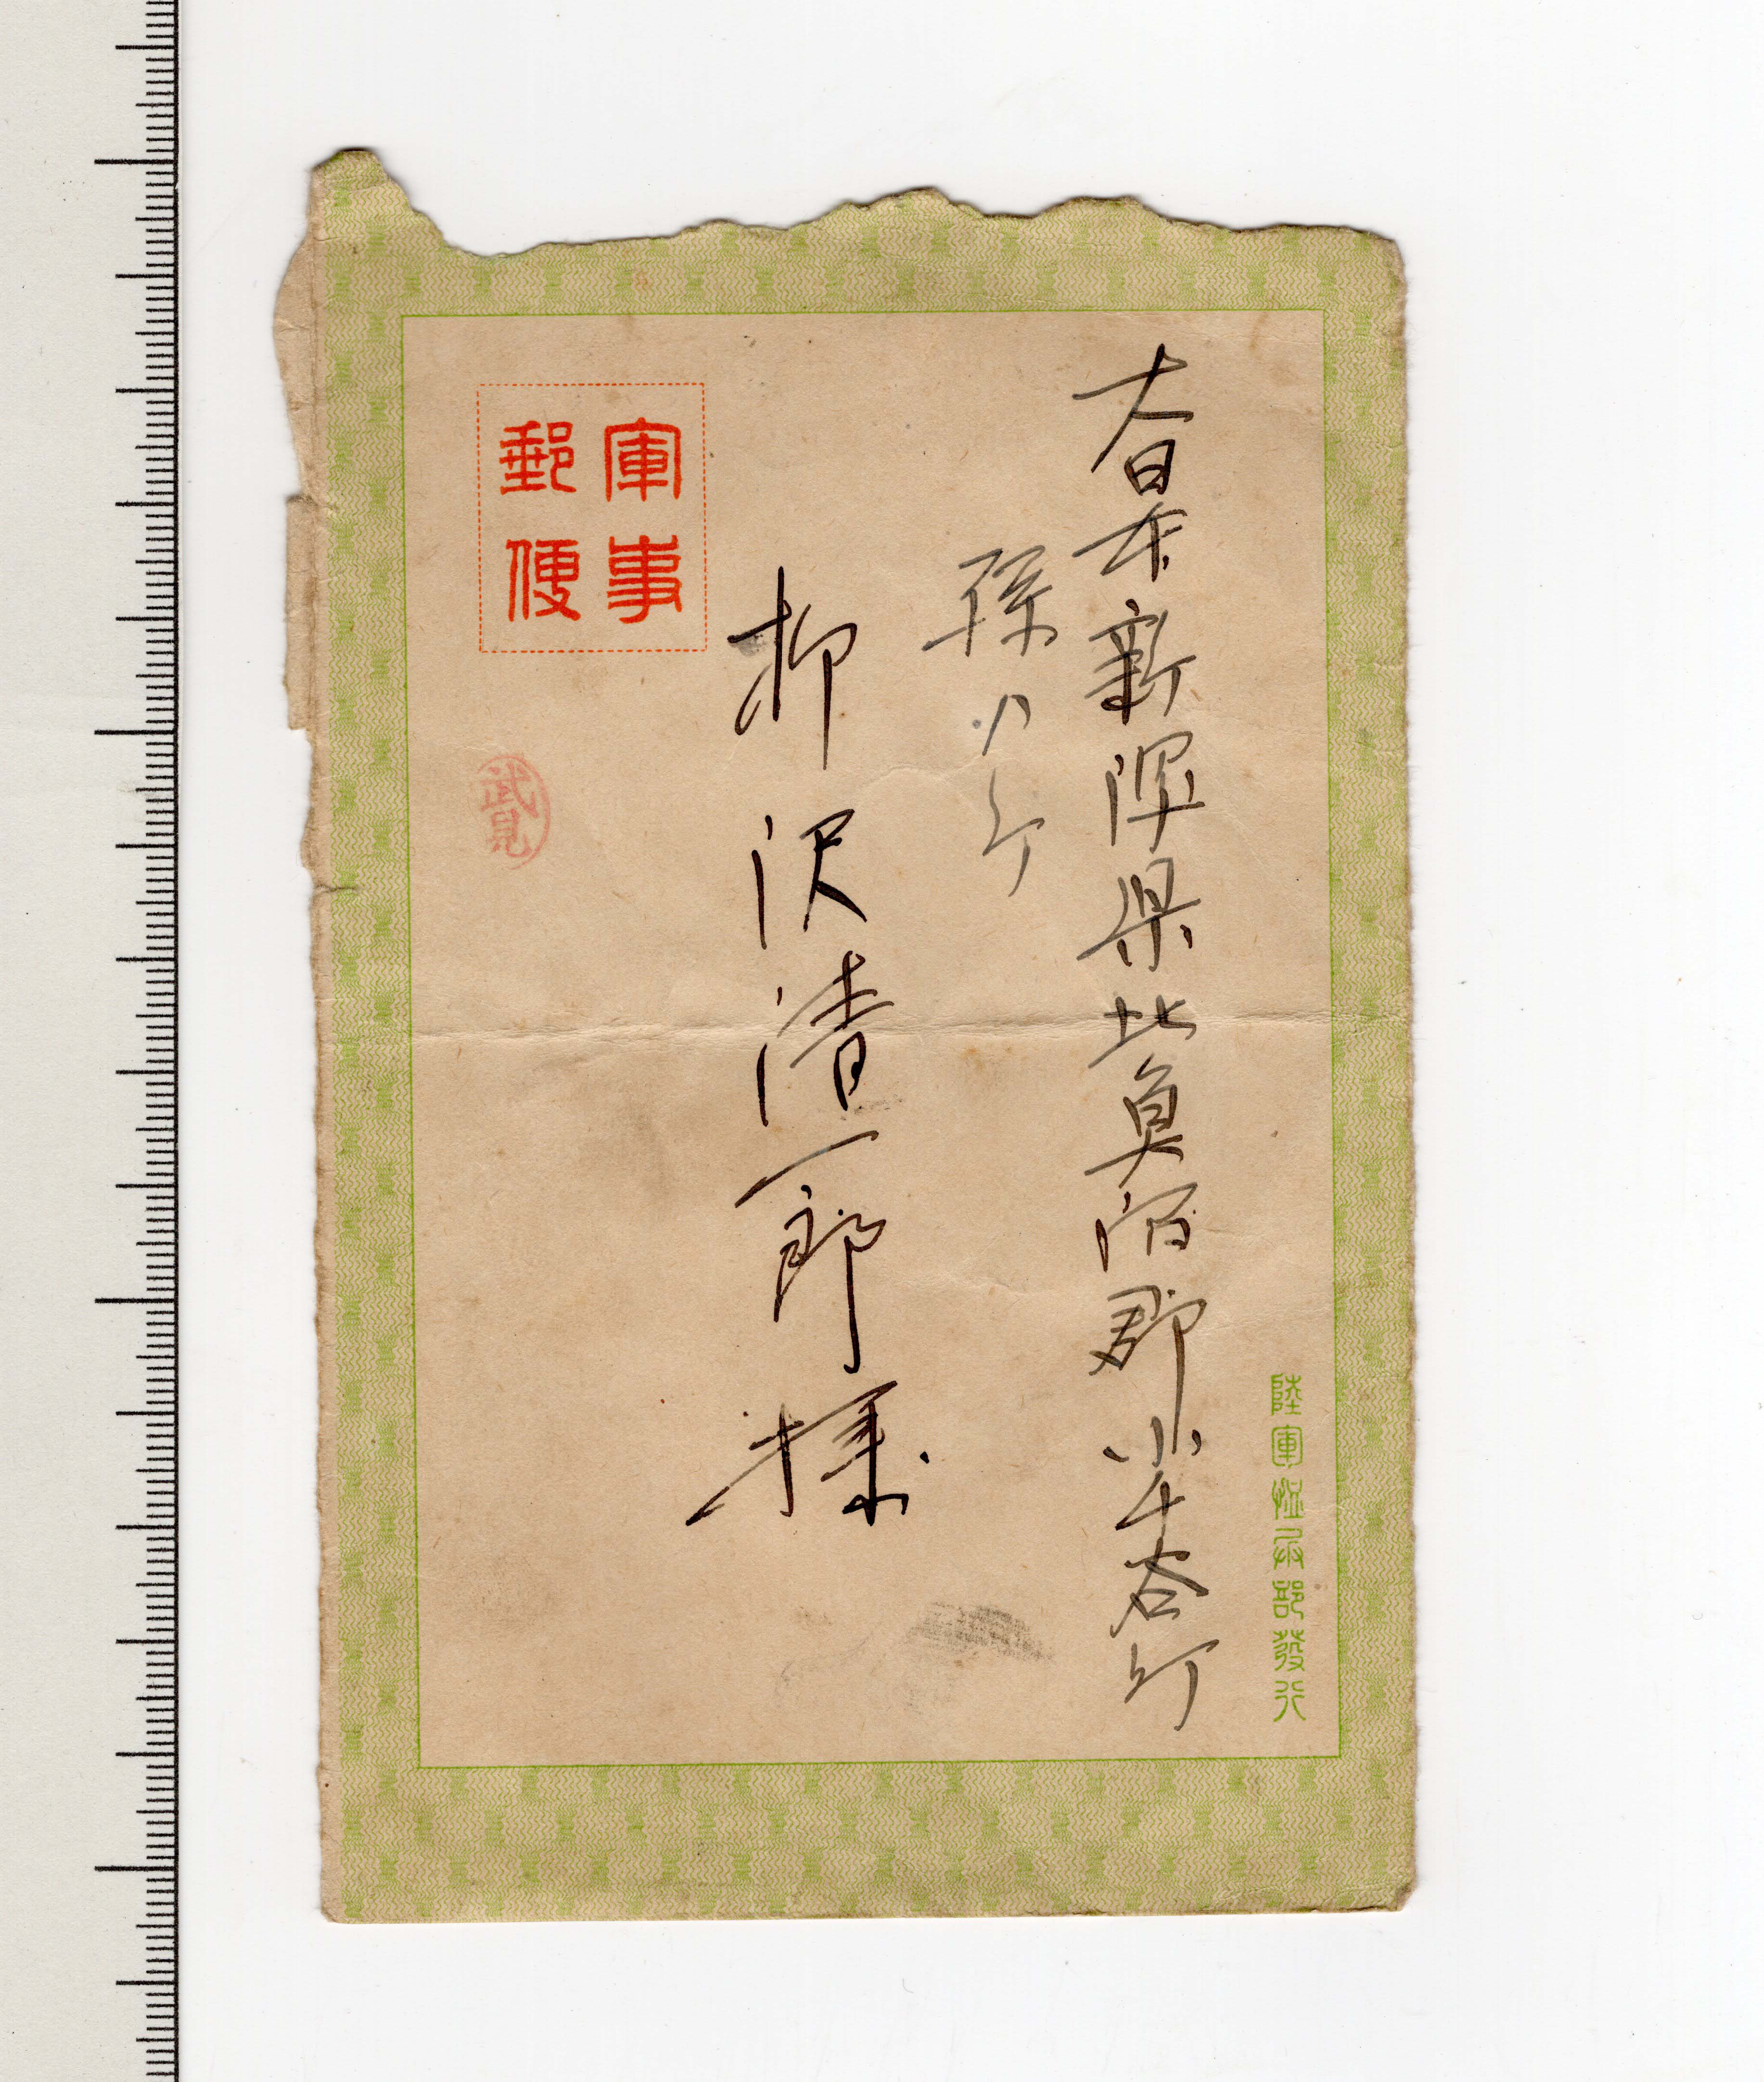 陸軍恤兵部發行
大日本新潟県北魚沼郡小千谷町
柳沢清一郎様
軍事
郵便
武見